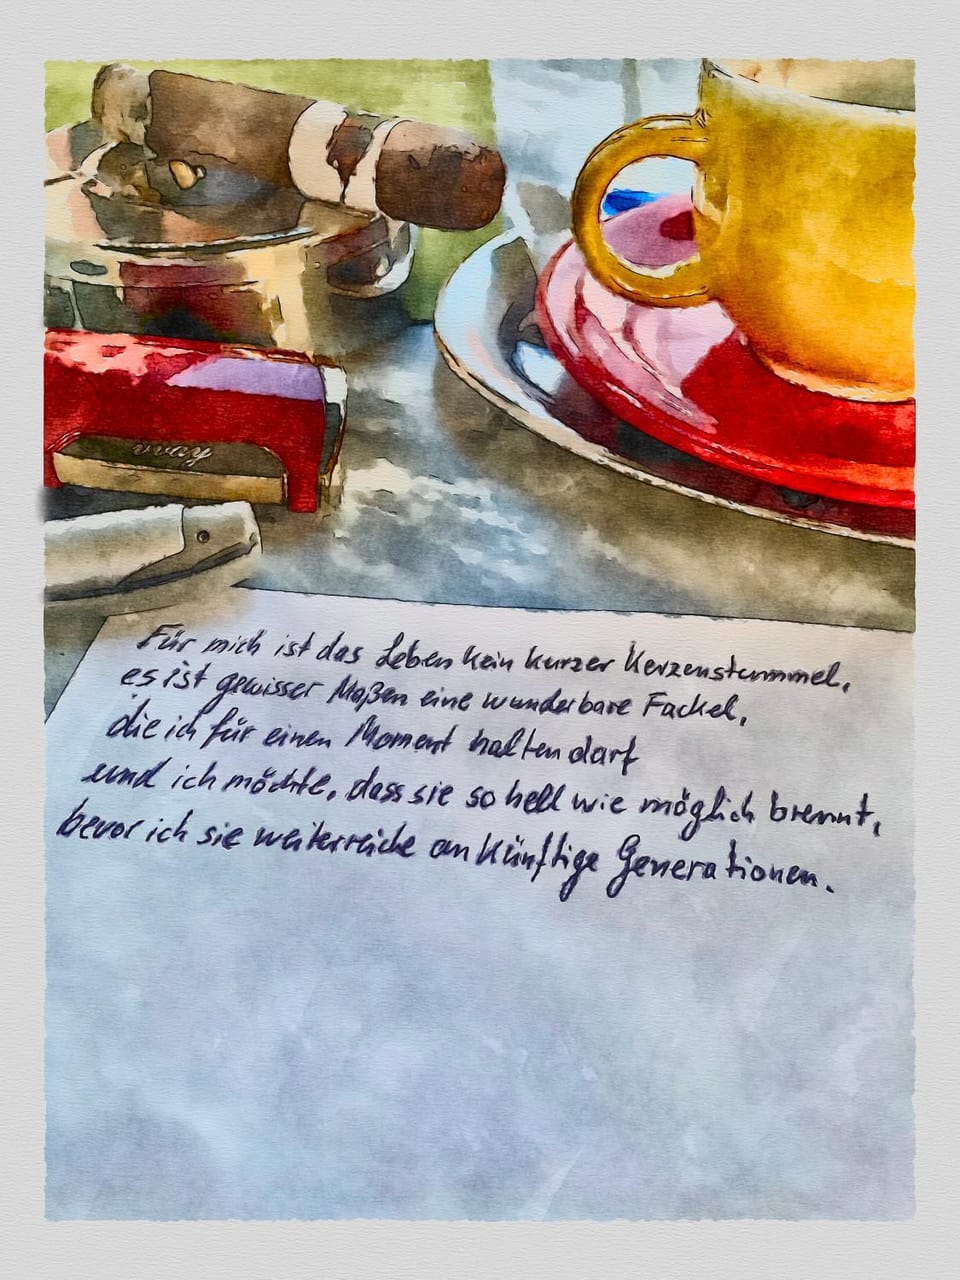 Für mich ist das Leben kein kurzer Kerzenstummel,
es ist gewisser Maßen eine wunderbare Fackel,
die ich für einen Moment halten darf
und ich möchte, dass sie so hell wie möglich brennt,
bevor ich sie weiterreiche an künftige Generationen.